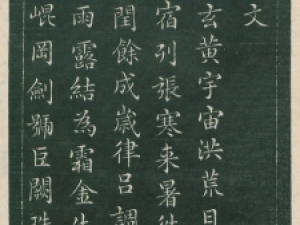 文
玄黃宇宙洪荒日
宿列張寒来暑往
閏餘成歲律呂調
雨露結為霜金生
崐岡劍號巨闕珠